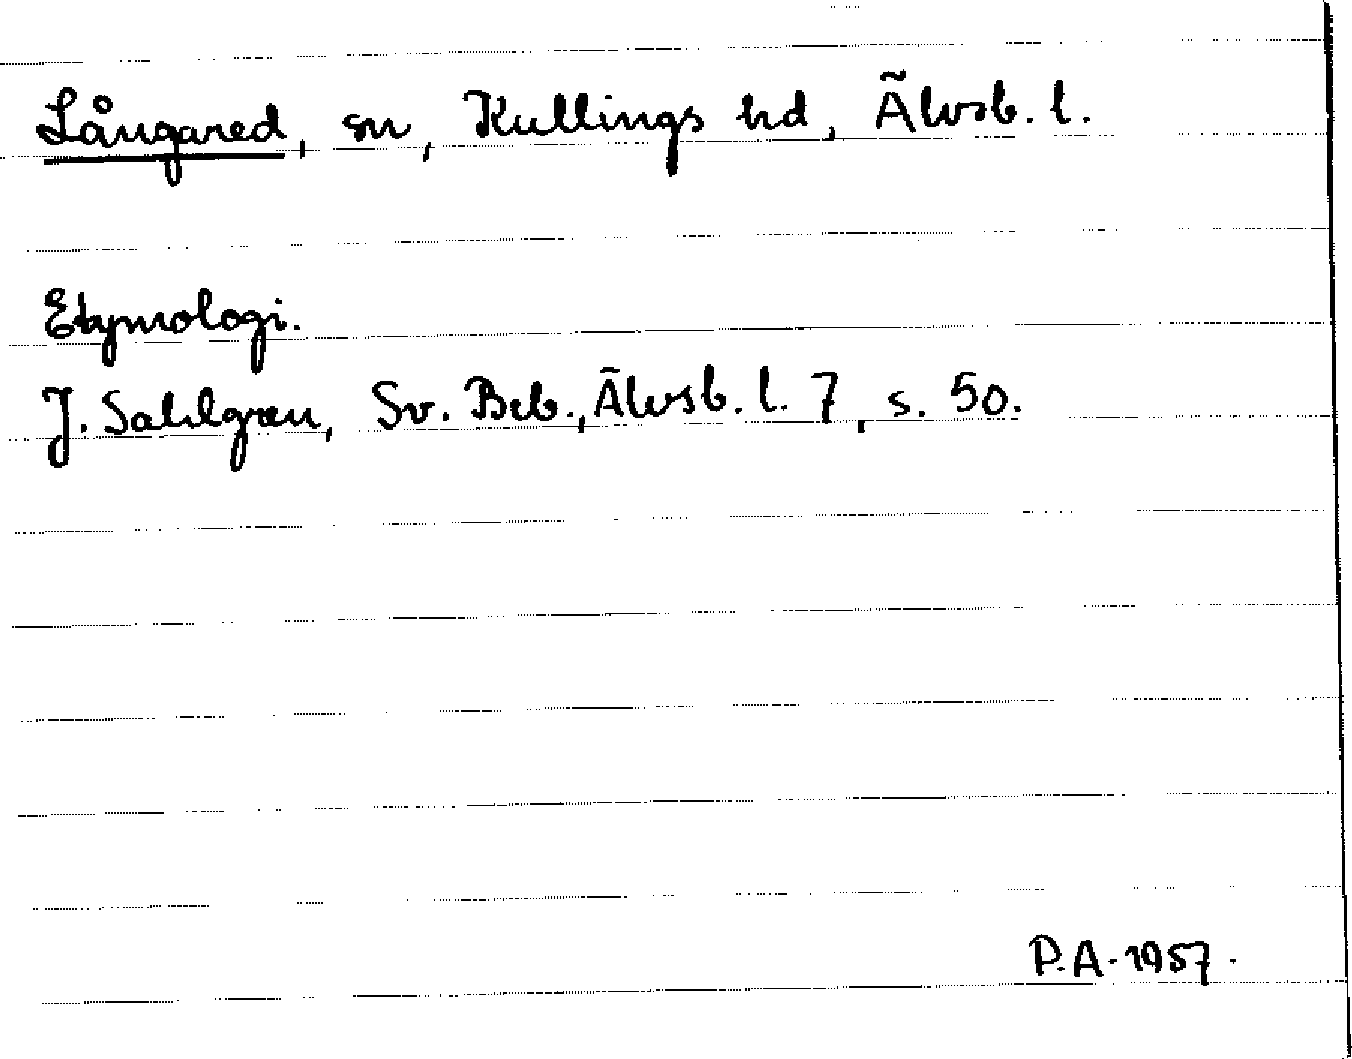 Långared, sn, Kullings hd, Älvsb. l.
Etymologi.
J. Sahlgren, Sv. Beb., Älvsb. l. 7, s. 50.
P.A. 1957.